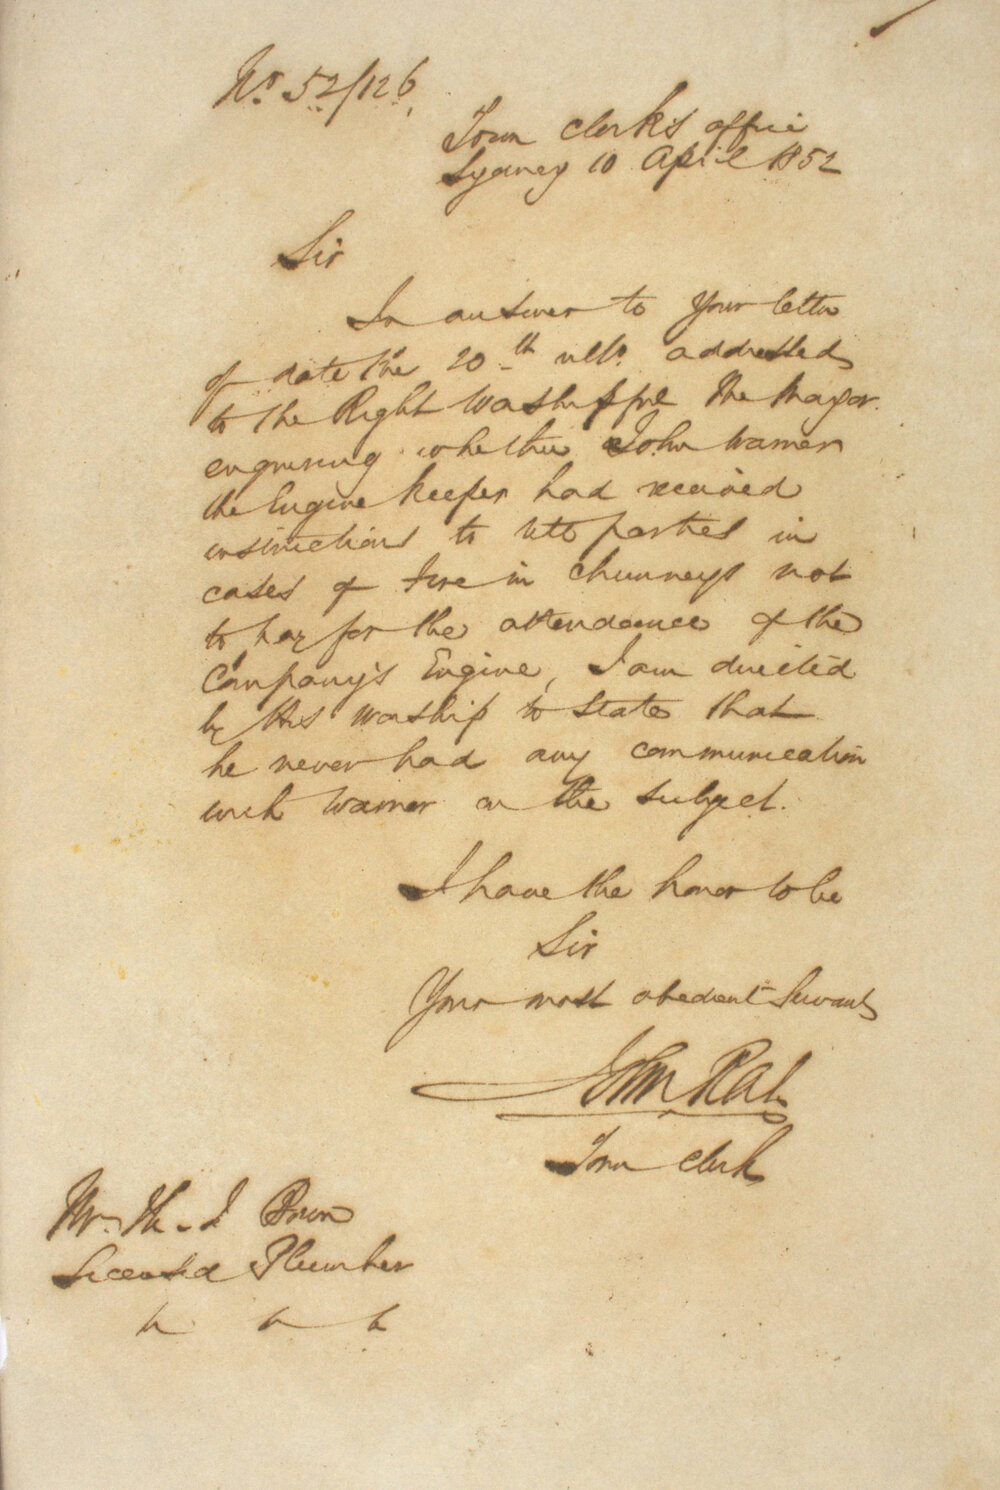 No. 52/126
Town Clerk's Office
Sydney 10 April 1852
Sir
In answer to Your letter
of date the 20th ulto. addressed
to the Right Worshipful The Mayor
enquiring whether John Warner
the Engine keeper had received
instructions to tell parties in
cases of fire in chimneys not
to pay for the attendance of the
Company's Engine, I am directed
by His Worship to state that
he never had any communication
with Warner on the subject.
I have the honor to be
Sir
Your most obedient Servant
John Rae
Town Clerk
Mr. Th. J. Bown
Licensed Plumber